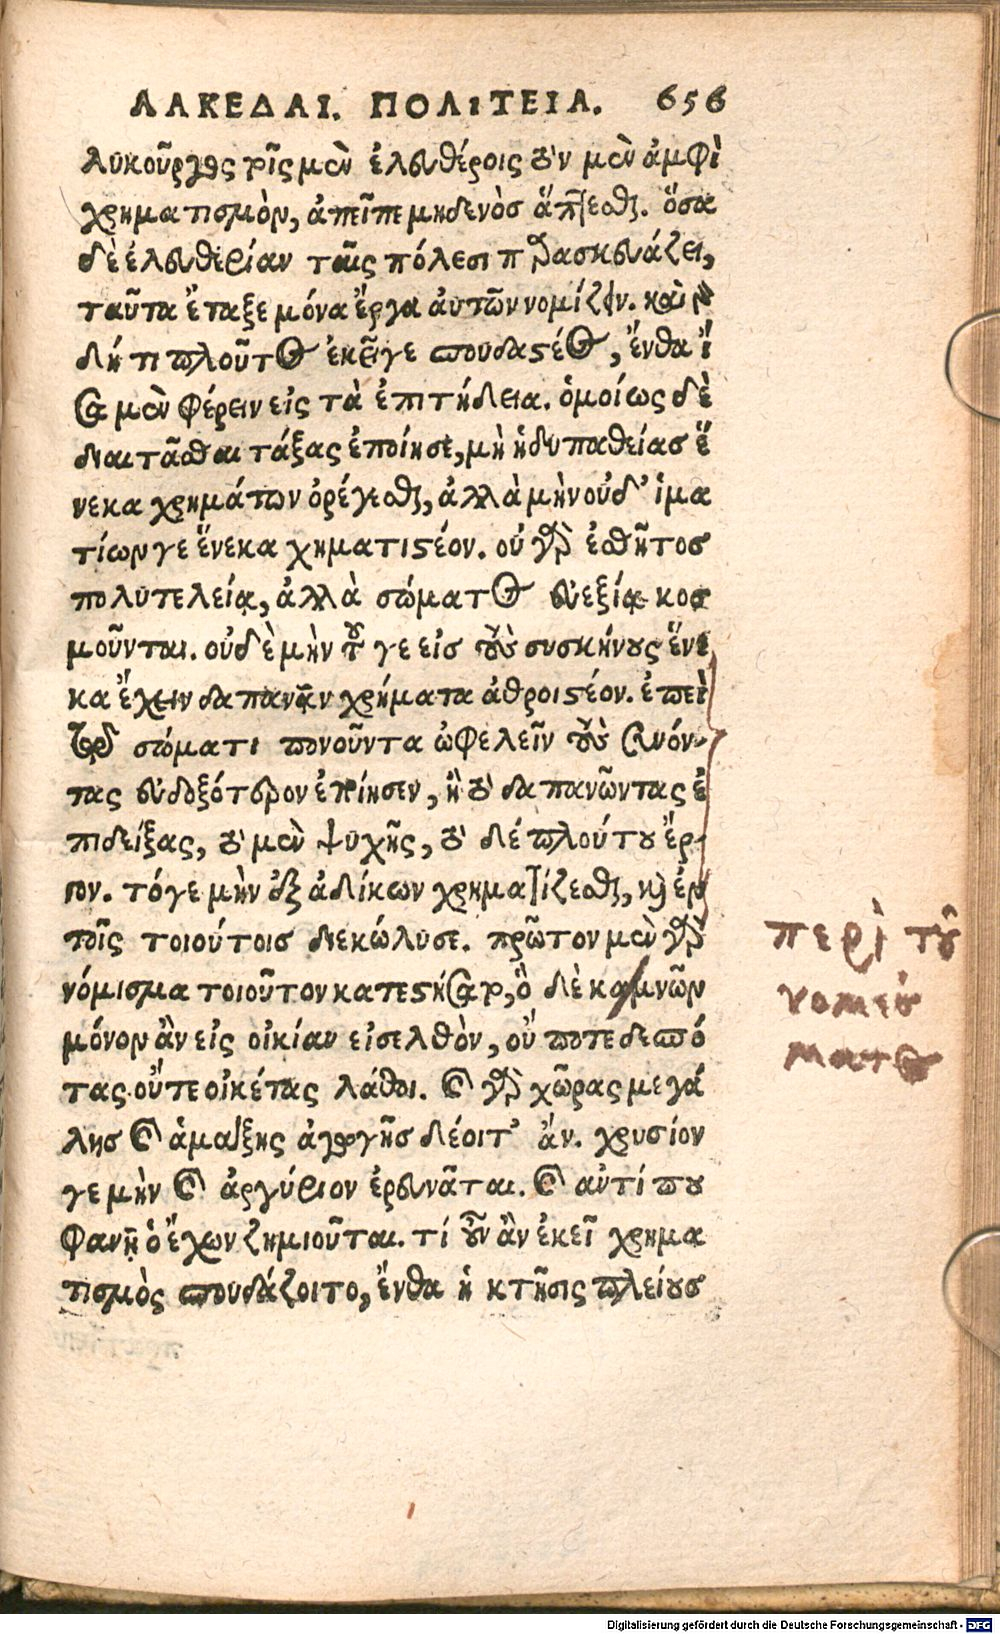 ΛΑΚΕΔΑΙ. ΠΟΛΙΤΕΙΑ. 656
λυκοῦργος τοῖς μὲν ἐλευθέροις τῶν μὲν ἀμφὶ
χρηματισμὸν, ἀπεῖπε μηδενὸς ἅπτεσθαι. ὅσα
δὲ ἐλευθερίαν ταῖς πόλεσι παρασκευάζει,
ταῦτα ἔταξε μόνα ἔργα αὐτῶν νομίζειν. καὶ γὰρ
δή τι πλοῦτος ἐκεῖ γε σπουδαστέος, ἔνθα ἴ
σα μὲν φέρειν εἰς τὰ ἐπιτήδεια. ὁμοίως δὲ
διαιτᾶσθαι τάξας ἐποίησε, μὴ ἡδυπαθείας ἕ
νεκα χρημάτων ὀρέγεσθαι, ἀλλὰ μὴν οὐδ' ἱμα
τίων γε ἕνεκα χηματιστέον. οὐ γὰρ ἐσθῆτος
πολυτελείᾳ, ἀλλὰ σώματος εὐεξίᾳ κοσ
μοῦνται. οὐδὲ μὴν τοῦ γε εἰς τοὺς συσκήνους ἕνε
κα ἔχειν δαπανᾶν χρήματα ἀθροιστέον. ἐπεὶ
τὸ σώματι πονοῦντα ὠφελεῖν τοὺς συνόν-
τας εὐδοξότερον ἐποίησεν, ἢ τὸ δαπανῶντας ἐ
πιδείξας, τὸ μὲν ψυχῆς, τὸ δέ πλούτου ἔρ-
γον. τό γε μὴν ἐξ ἀδίκων χρηματίζεσθαι, καὶ ἐν
τοῖς τοιούτοις διεκώλυσε. πρῶτον μὲν γὰρ
νόμισμα τοιοῦτον κατεστήσατο, ὃ δὲ καμνῶν
μόνον ἂν εἰς οἰκίαν εἰσελθὸν, οὔποτε δεσπό
τας οὔτε οἰκέτας λάθοι. καὶ γὰρ χῶρας μεγά
λης καὶ ἁμάξης ἀγωγῆς δέοιτ' ἄν. χρυσίον
γε μὴν καὶ ἀργύριον ἐρευνᾶται. καὶ αὐτί που
φανῇ ὁ ἔχων ζημιοῦται. τί οὖν ἂν ἐκεῖ χρημα
τισμὸς σπουδάζοιτο, ἔνθα ἡ κτῆσις πλείους
περὶ τοῦ
νομίσ
ματος
Digitalisierung gefördert durch die Deutsche Forschungsgemeinschaft - DFG